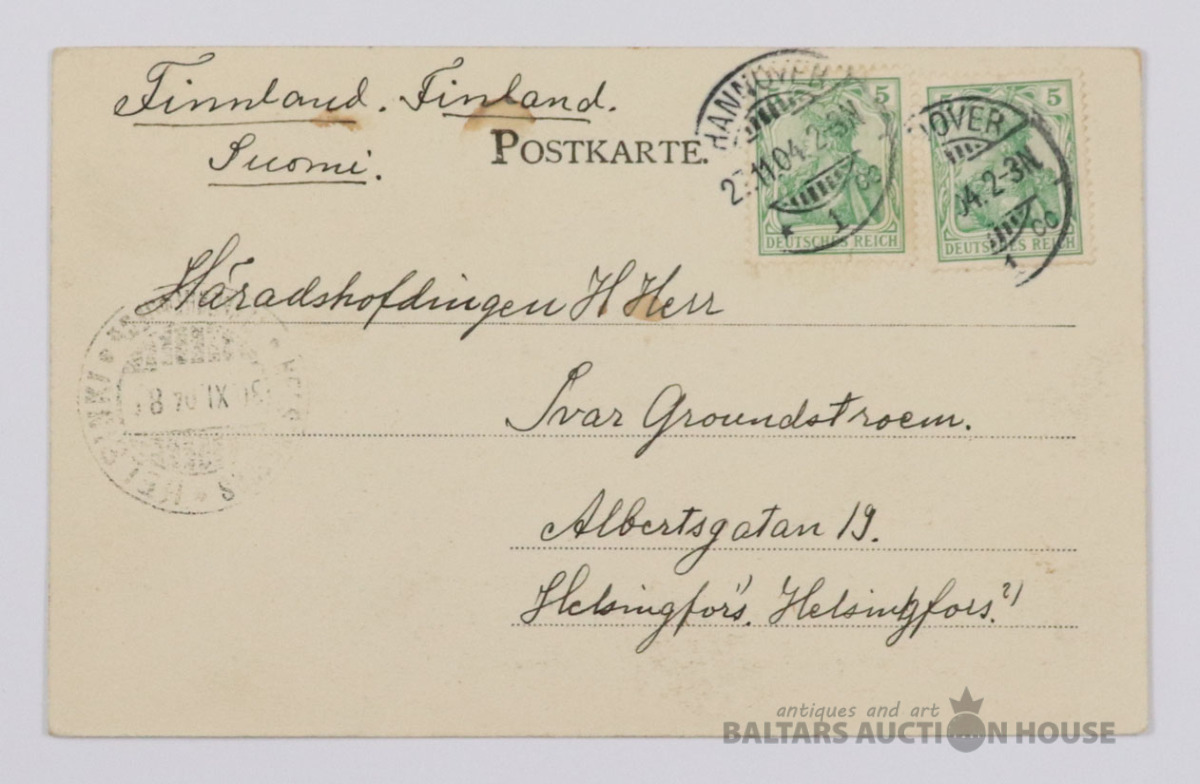 Finnland. Finland.
Suomi.
POSTKARTE.
HANNOVER
27.11.04.2-3N
* 1 cc
5
DEUTSCHES REICH
NOVER
04.2-3N
1 cc
5
DEUTSCHES REICH
Häradshofdingen H Herr
HELSINKI
Ivar Groundstroem.
Albertsgatan 19.
Helsingfors. Helsingfors.
antiques and art
BALTARS AUCTION HOUSE